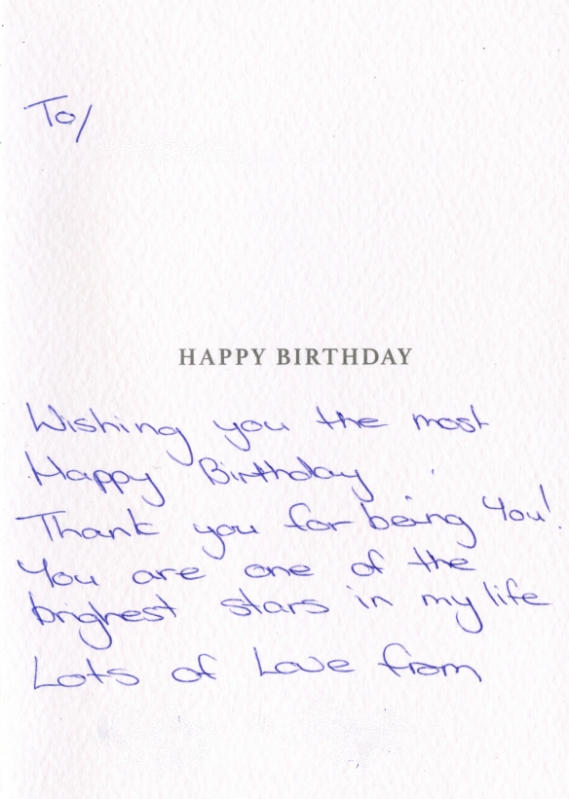 To/
HAPPY BIRTHDAY
Wishing you the most
Happy Birthday.
Thank you for being You!
You are one of the
brighest stars in my life
Lots of Love from